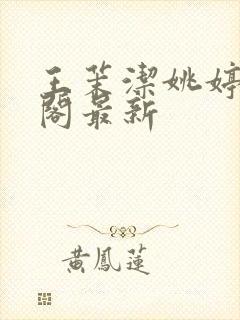 王茉潔姚婷
閣最新
黃鳳蓮